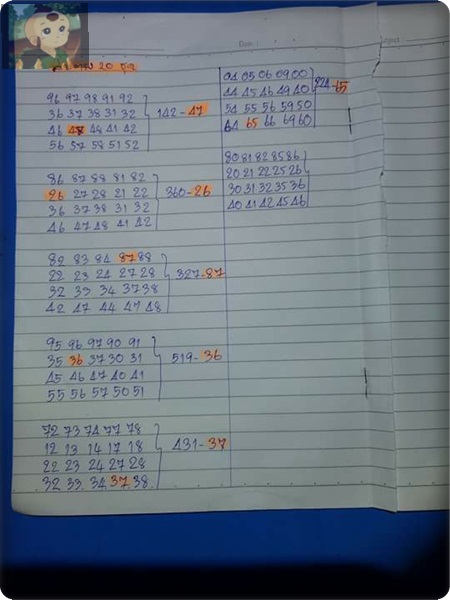 96 97 98 91 92
36 37 38 31 32
46 47 48 41 42
56 57 58 51 52
142-47
86 87 88 81 82
26 27 28 21 22
36 37 38 31 32
46 47 48 41 42
360-26
82 83 84 87 88
22 23 24 27 28
32 33 34 37 38
42 47 44 47 48
327-87
95 96 97 90 91
35 36 37 30 31
45 46 47 40 41
55 56 57 50 51
519-36
72 73 74 77 78
12 13 14 17 18
22 23 24 27 28
32 33 34 37 38
431-37
04 05 06 09 00
44 45 46 49 40
54 55 56 59 50
64 65 66 69 60
924-65
80 81 82 85 86
20 21 22 25 26
30 31 32 35 36
40 41 42 45 46